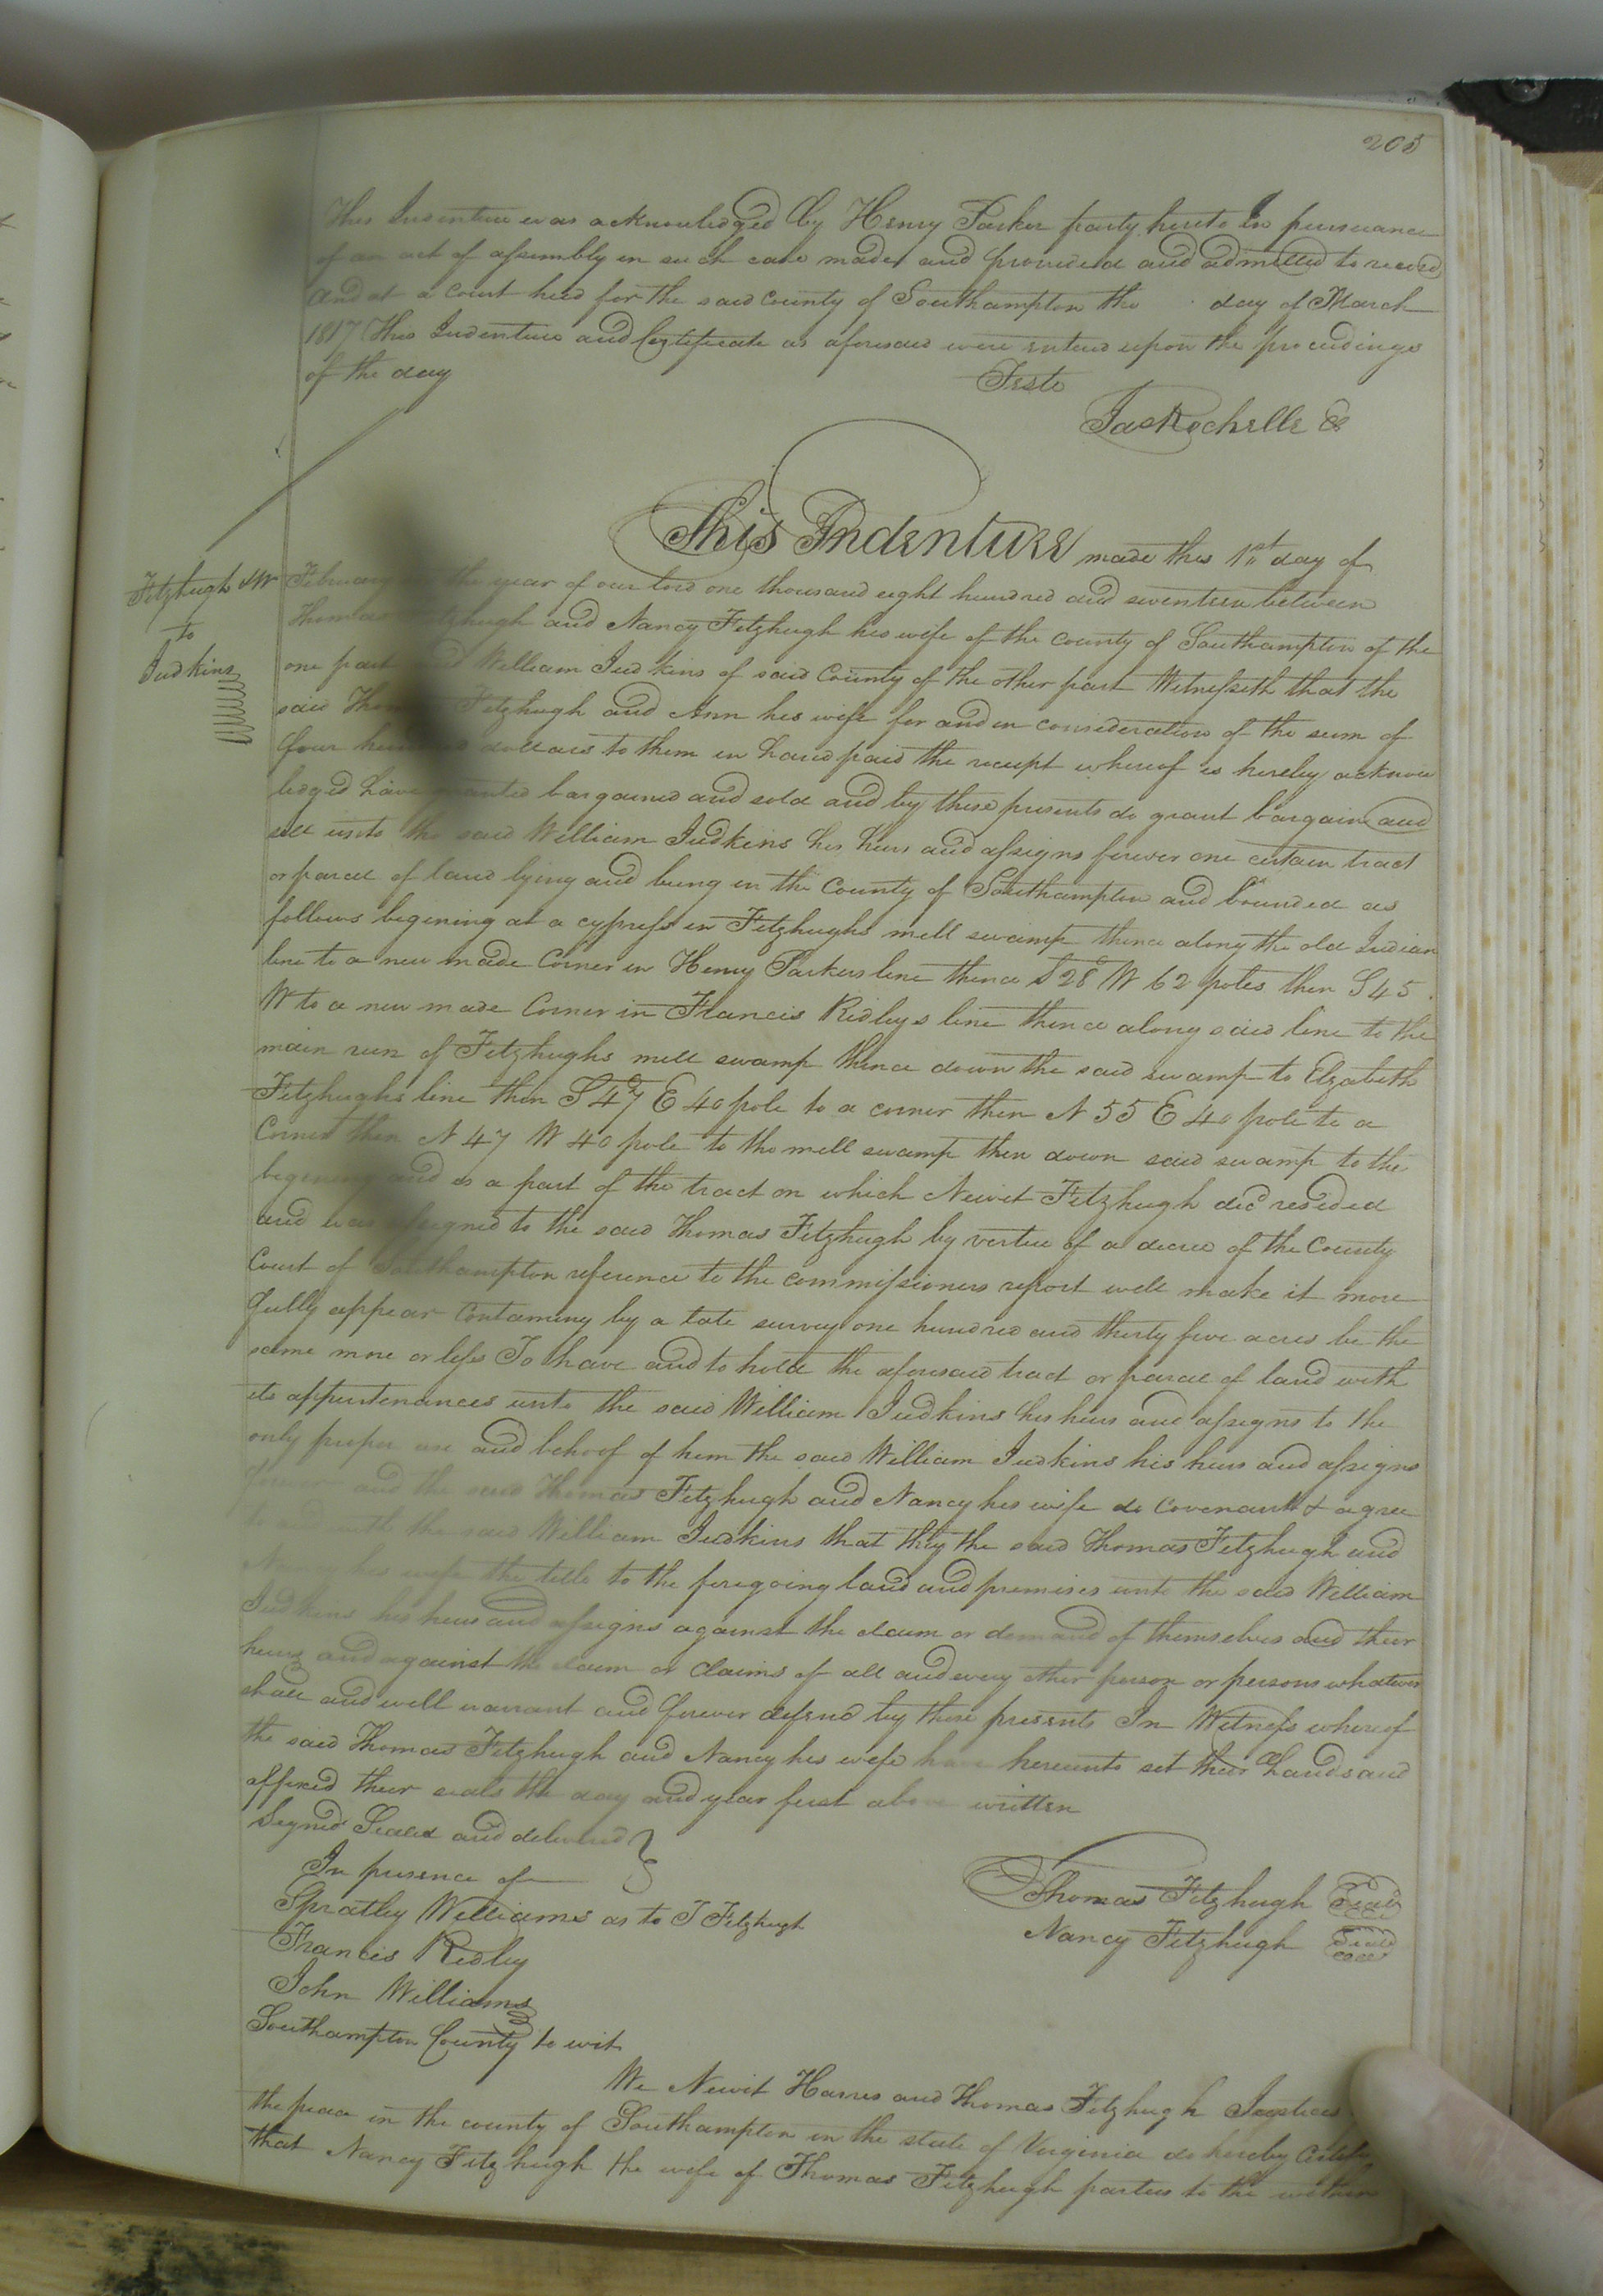 203
This Indenture was acknowledged by Henry Parker party hereto In pursuance
of an act of assembly in such case made and provided and admitted to record
And at a Court held for the said County of Southampton the day of March
1817 This Indenture and Certificate as aforesaid were entered upon the proceedings
of the day
Teste
Jas Rochelle
This Indenture made this 1st day of
Fitzhugh & Wr
to
Judkins
February the year of our lord one thousand eight hundred and seventeen between
Thomas Fitzhugh and Nancy Fitzhugh his wife of the County of Southampton of the
one part and William Judkins of said County of the other part Witnesseth that the
said Thomas Fitzhugh and Ann his wife for and in consideration of the sum of
four hundred dollars to them in hand paid the receipt whereof is hereby acknow
ledged have granted bargained and sold and by these presents do grant bargain and
sell unto the said William Judkins his heirs and assigns forever one certain tract
or parcel of land lying and being in the County of Southampton and bounded as
follows begening at a cypress in Fitzhughs mill swamp thence along the old Indian
line to a new made Corner in Henry Parkers line thence S 28° W 62 poles then S 45
W to a new made Corner in Francis Ridleys line thence along said line to the
main run of Fitzhughs mill swamp thence down the said swamp to Elzabeth
Fitzhughs line then S 47 E 40 pole to a corner then N 55 E 40 pole to a
Corner then N 47 W 40 pole to the mill swamp then down said swamp to the
begening and is a part of the tract on which Newit Fitzhugh decd resided
and was assigned to the said Thomas Fitzhugh by vertue of a decree of the County
Court of Southampton reference to the commissioners report will make it more
fully appear Containing by a late survey one hundred and thirty five acres be the
same more or less To have and to hold the aforesaid tract or parcel of land with
its appurtenances unto the said William Judkins his heirs and assigns to the
only proper use and behoof of him the said William Judkins his heirs and assigns
forever and the said Thomas Fitzhugh and Nancy his wife do Covenant & agree
to and with the said William Judkins that they the said Thomas Fitzhugh and
Nancy his wife the title to the foregoing land and premises unto the said William
Judkins his heirs and assigns against the claim or demand of themselves and their
heirs and against the claim or claims of all and every other person or persons whatever
shall and will warrant and forever defend by these presents In Witness whereof
the said Thomas Fitzhugh and Nancy his wife have hereunto set their hands and
affixed their seals the day and year first above written
Signed Sealed and delivered
In presence of
Spratley Williams as to T Fitzhugh
Francis Ridley
John Williams
Thomas Fitzhugh Seal
Nancy Fitzhugh Seal
Southampton County to wit
We Newit Harris and Thomas Fitzhugh Justices
the peace in the county of Southampton in the state of Virginia do hereby Certify
that Nancy Fitzhugh the wife of Thomas Fitzhugh parties to the within